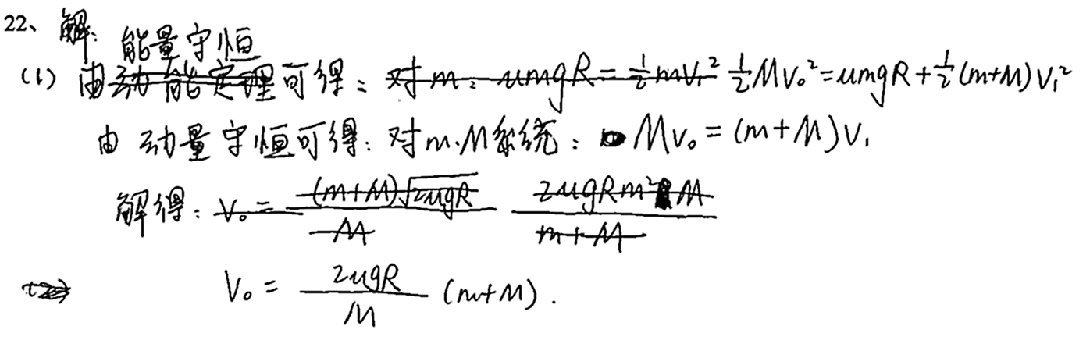 22、解:
能量守恒
(1) 由动能定理可得: 对m: umgR=½mV₁² ½MV₀²=umgR+½(m+M)V₁²
由动量守恒可得: 对m.M系统: MV₀=(m+M)V₁
解得: V₀=(m+M)√2ugR/M 2ugRm²M/m+M
(2) V₀=2ugR/M (m+M).